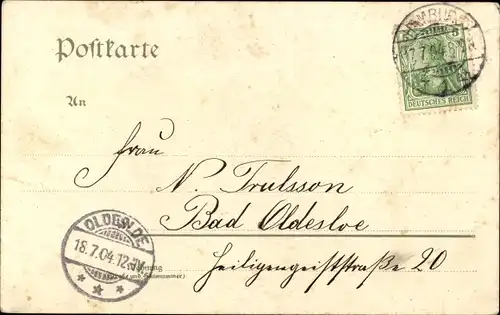 Postkarte
HAMBURG
5
17.7.04
DEUTSCHES REICH
An
Frau
N. Trulsson
Bad Oldesloe
OLDESLOE
18.7.04.12
Wohnung
(Straße und Hausnummer)
Heiligengeiststraße 20